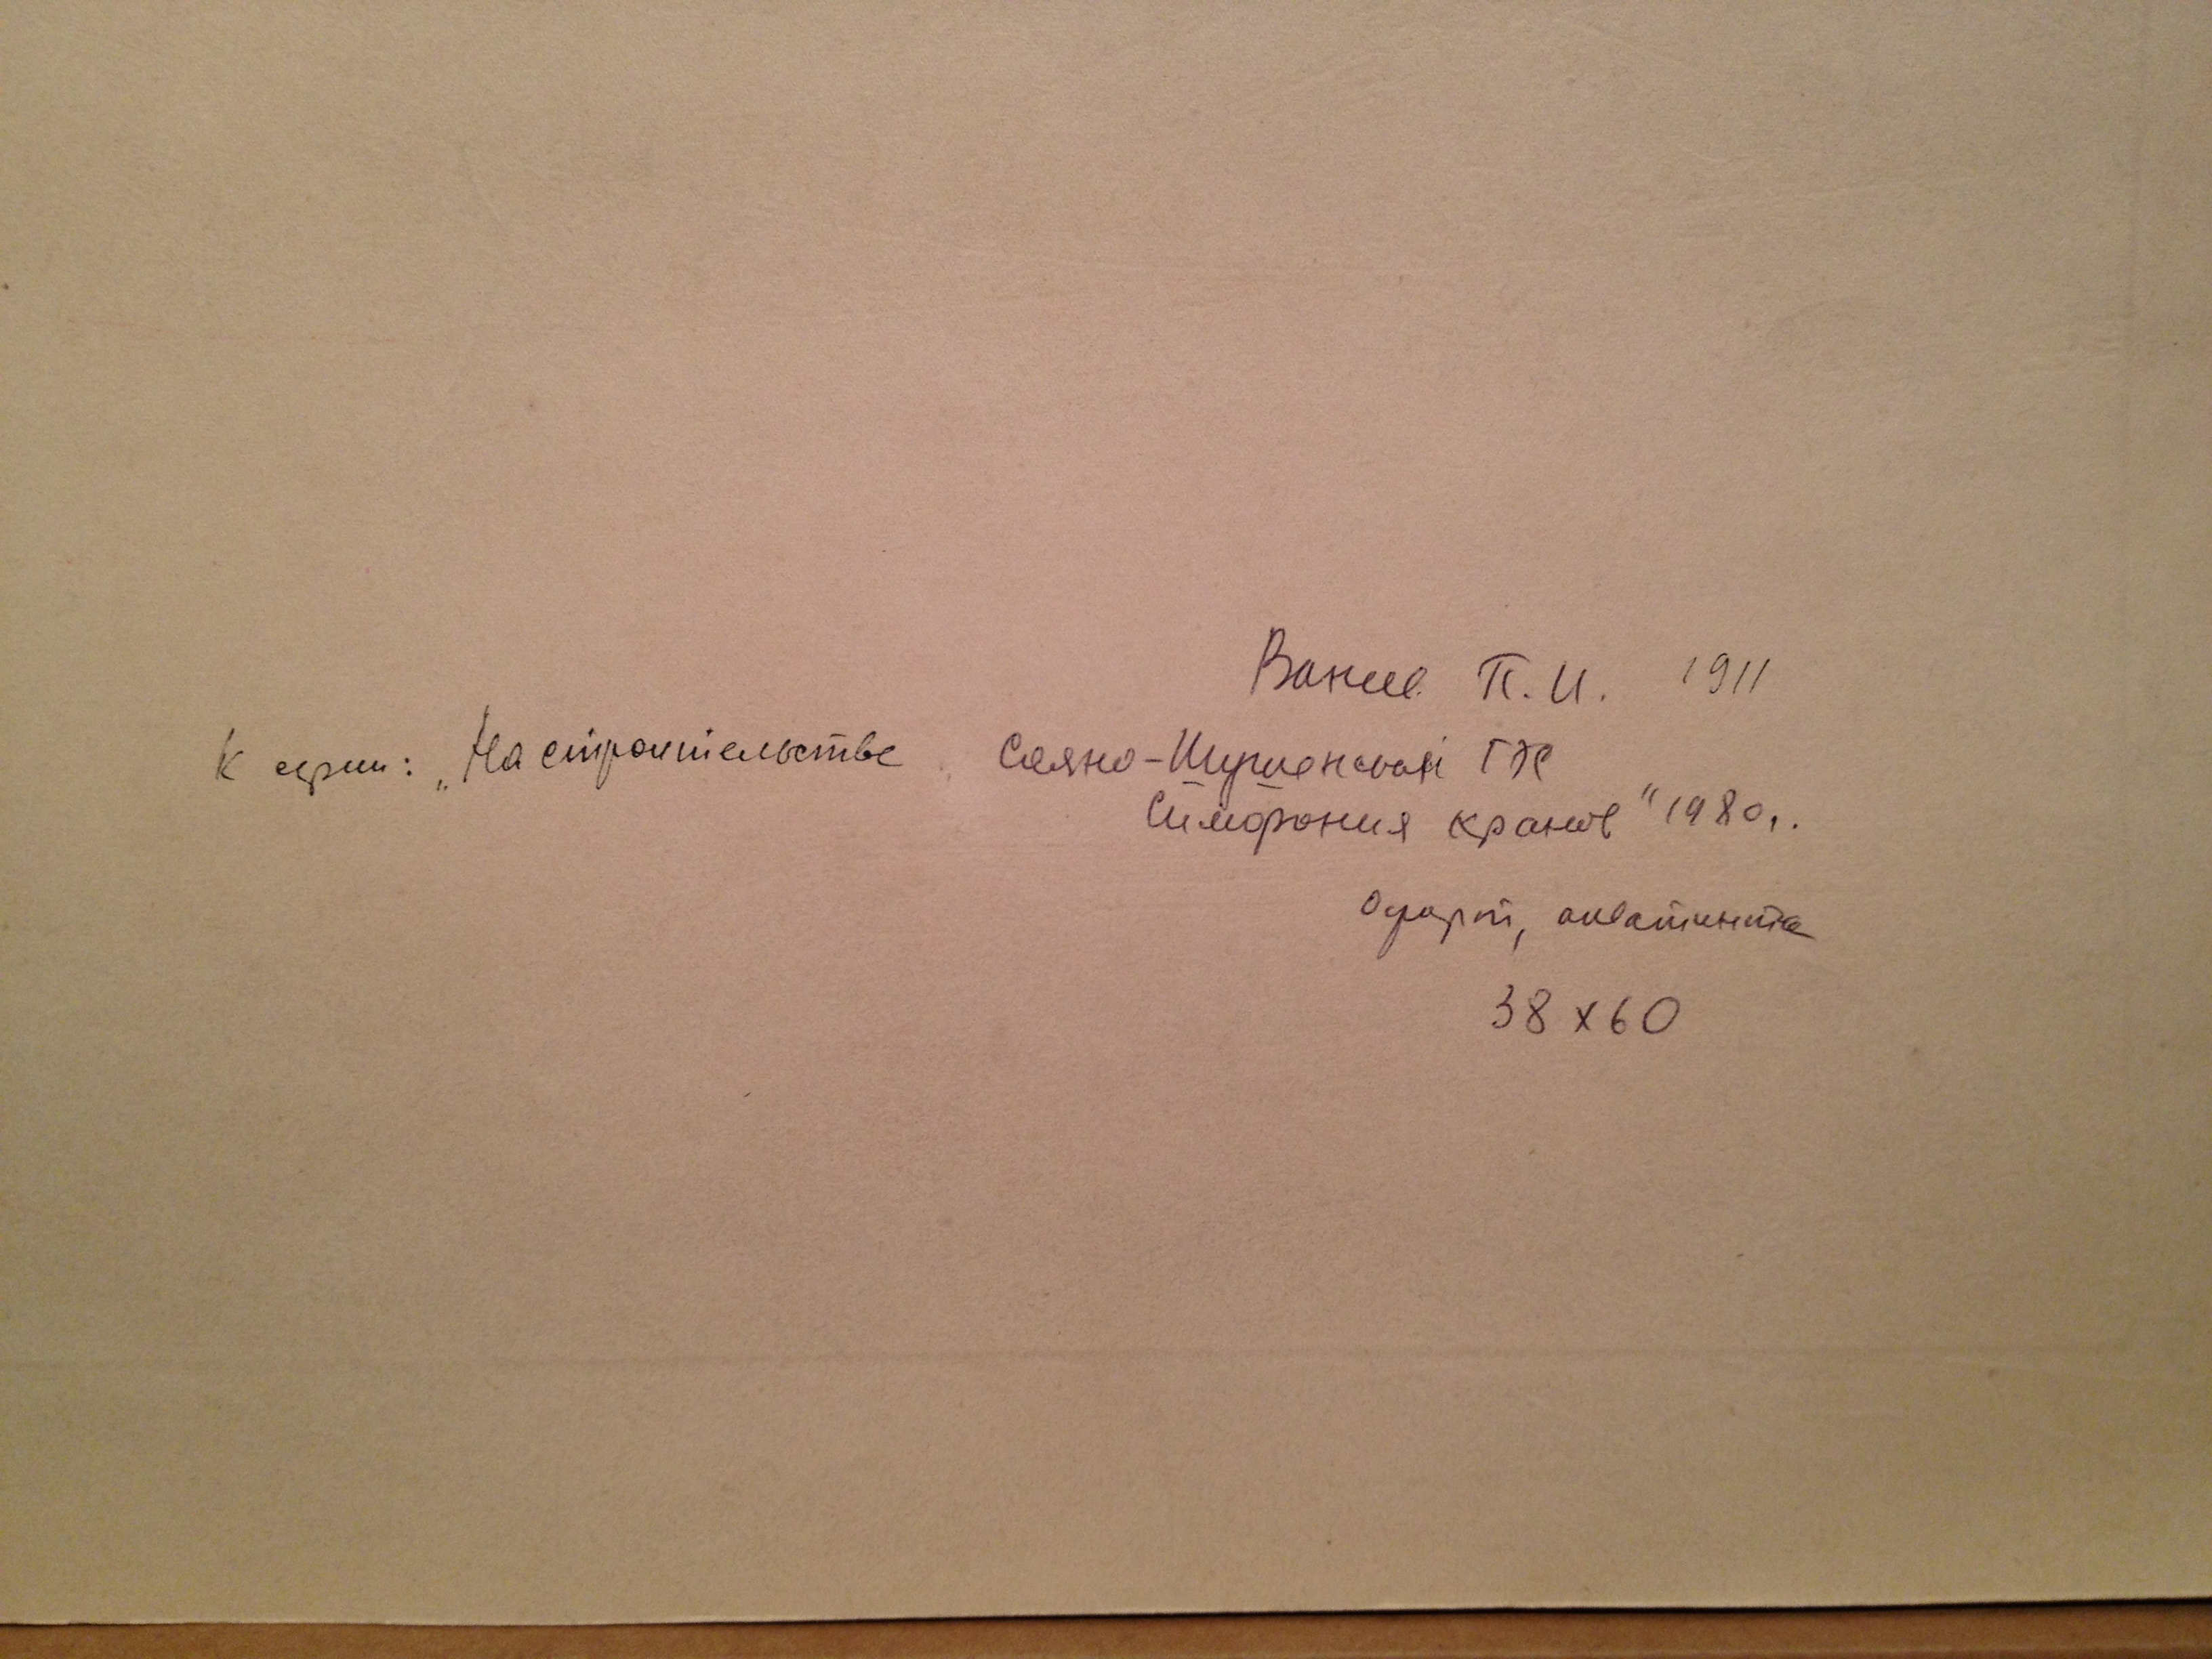 Вание П.И. 1911
К серии: „На строительстве Саяно-Шушенской ГЭС
Симфония кранов" 1980г.
Офорт, акватинта
38 x 60